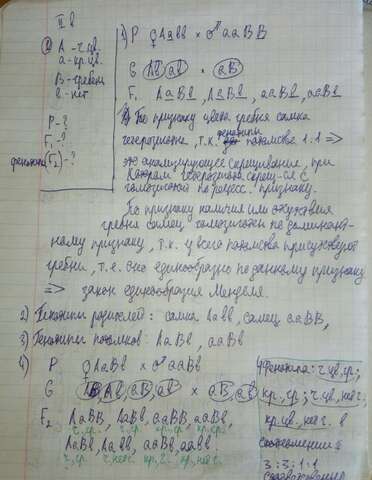 II в
А - ч. цв.
а - кр. цв.
В - гребень
в - нет
Р - ?
F₁ - ?
F₂ - ?
фенотип
1) Р ♀ Аавв × ♂ ааВВ
G Ав ав × аВ
F₁ АаВв, АаВв, ааВв, ааВв
По признаку цвета гребня самка
гетерозиготна, т.к. фенотипы потомства 1:1 =>
это анализирующее скрещивание, при
котором гетерозигота скрещ-ся с
гомозиготой по рецесс. признаку.
По признаку наличия или отсутствия
гребня самец гомозиготен по доминант-
ному признаку, т.к. у всего потомства присутствует
гребни, т.е. оно единообразно по данному признаку
=> закон единообразия Менделя.
2) Генотипы родителей: самка Аавв, самец ааВВ,
3) Генотипы потомков: АаВв, ааВв
4) Р ♀ АаВв × ♂ ааВв
G АВ, Ав, аВ, ав × аВ, ав
F₂ АаВВ, АаВв, ааВВ, ааВв,
ч., гр. ч., гр. кр., гр. кр., гр.
АаВв, Аавв, ааВв, аавв
ч., гр. ч., нет г. кр., г. кр., нет г.
Фенотип: ч. цв., гр.;
кр., гр.; ч. цв., нет г.;
кр. цв., нет г. в
соотношении
3:3:1:1